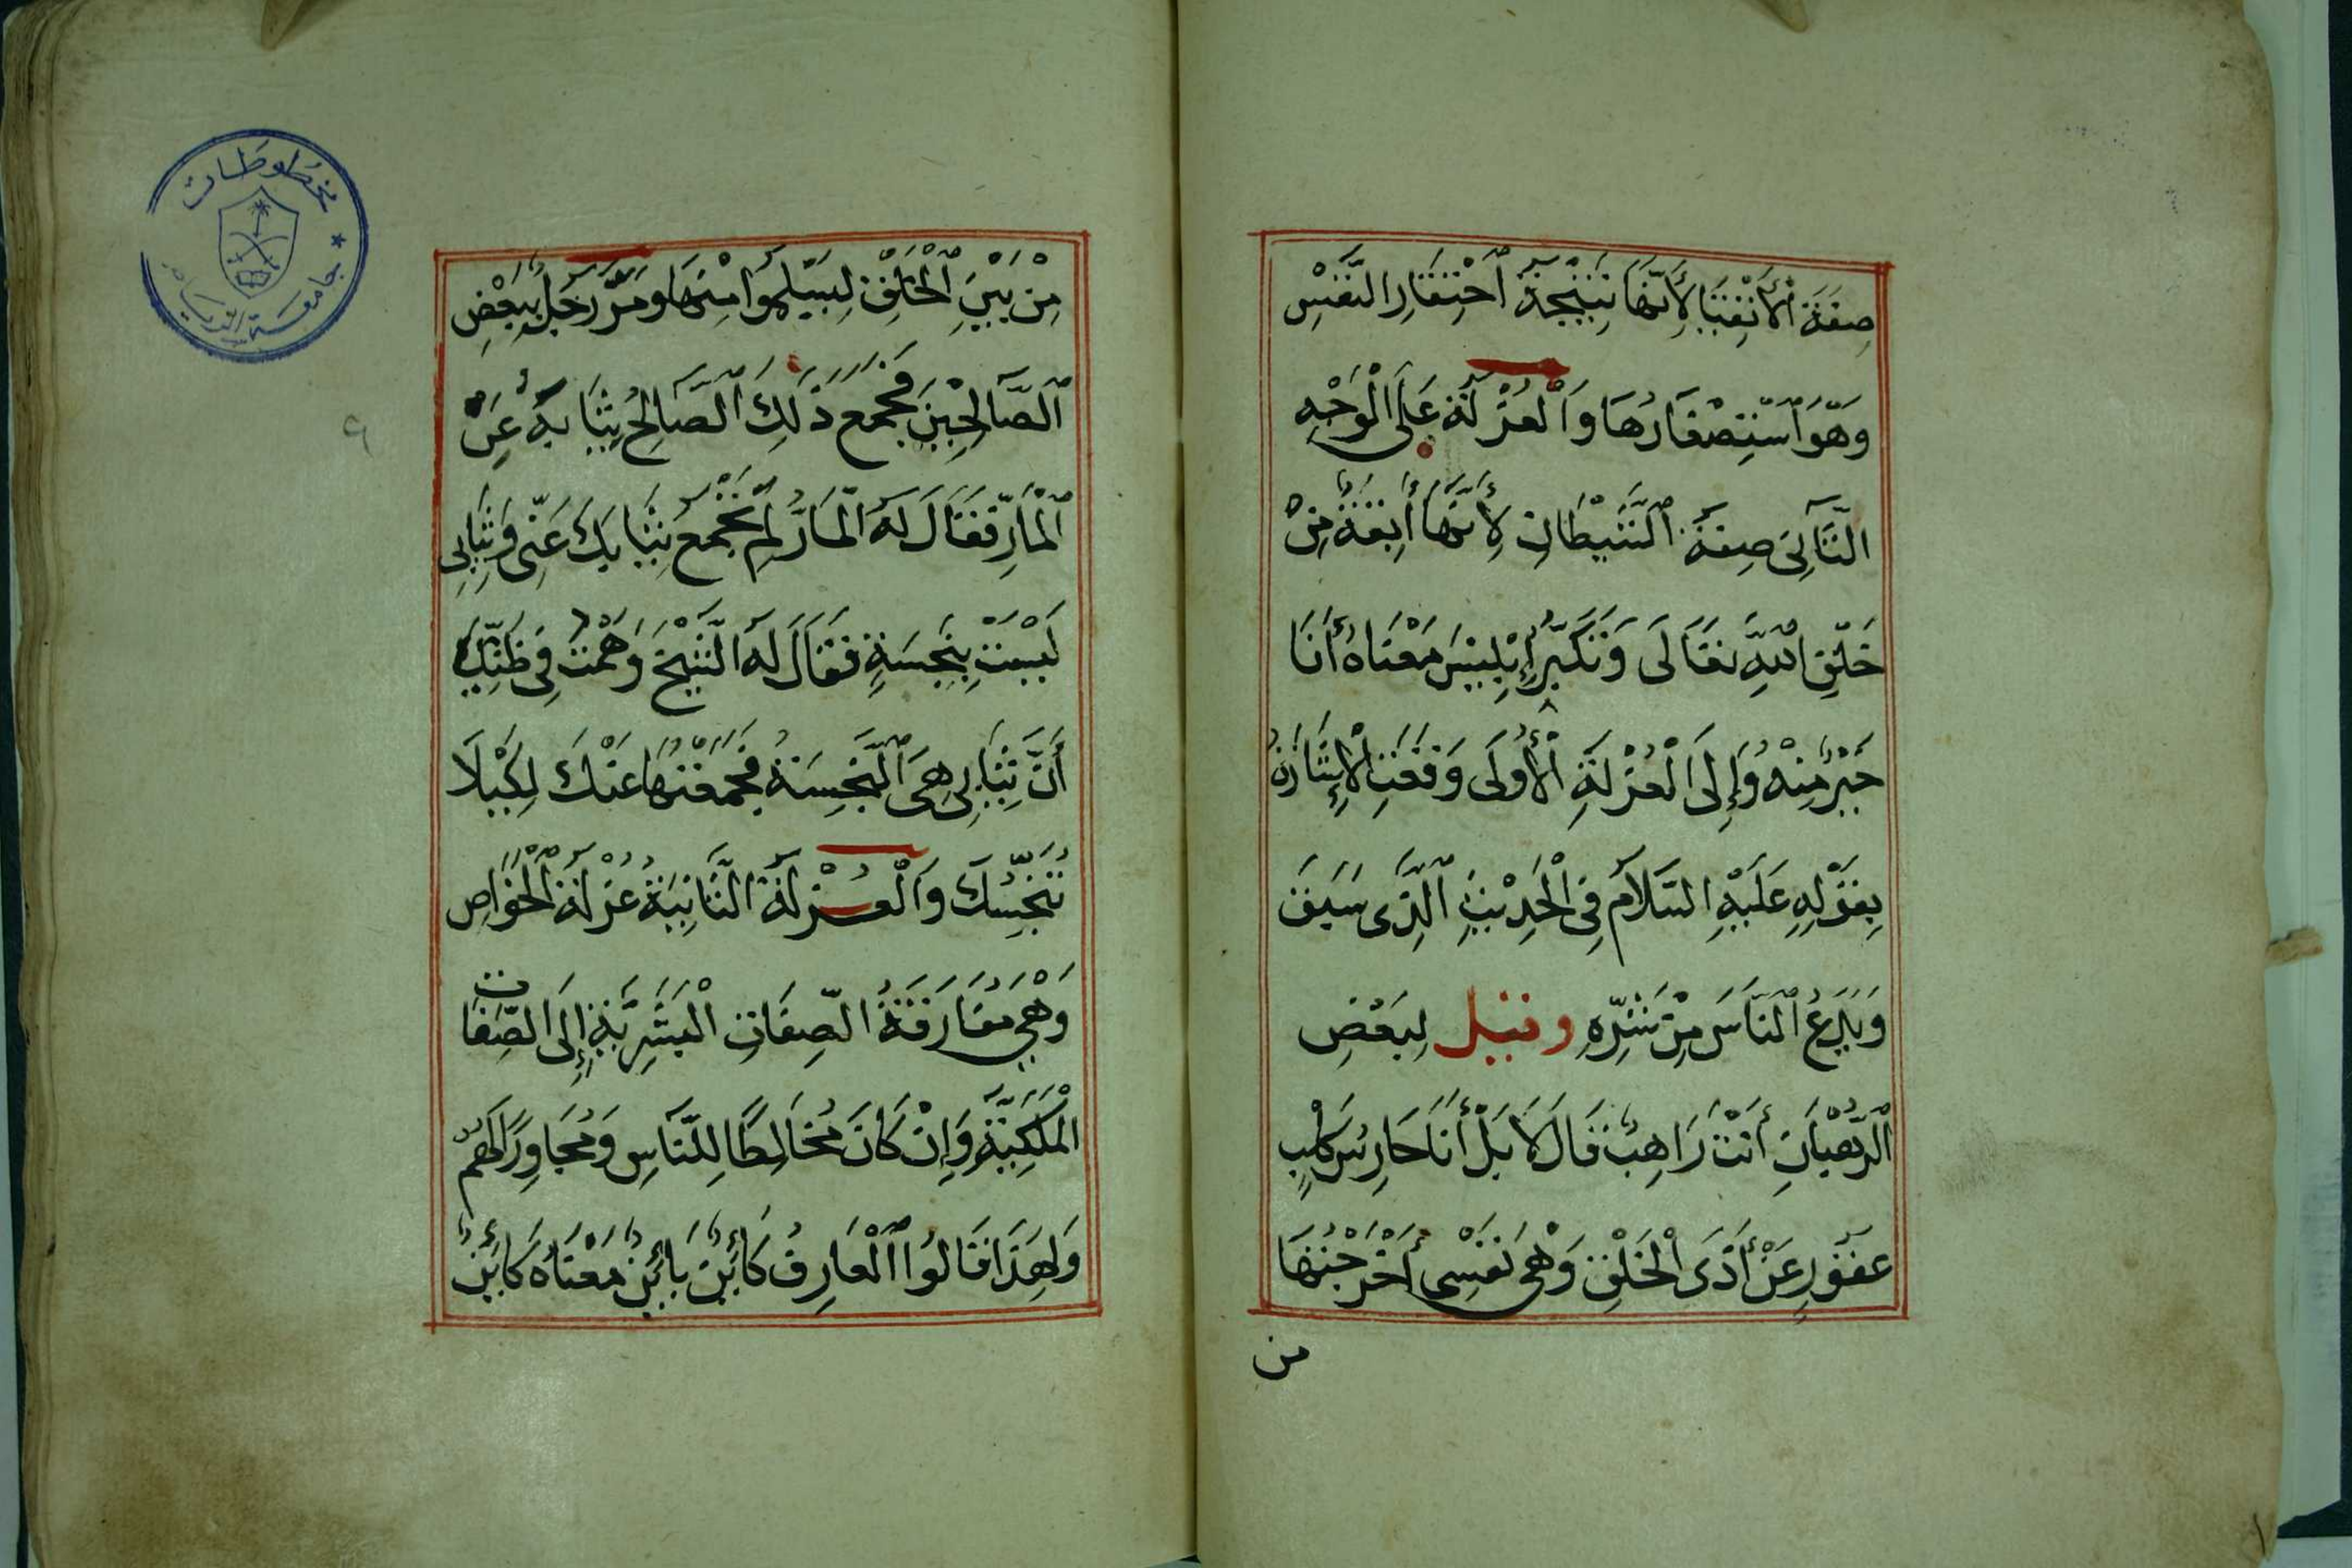 صِفَةُ ٱلْأَتْقِيَا لِأَنَّهَا نَتِيْجَةُ ٱحْتِقَارِ النَّفْسِ
وَهُوَ ٱسْتِصْغَارُهَا وَٱلْعُزْلَةُ عَلَى الْوَجْهِ
الثَّانِى صِفَةُ ٱلشَّيْطَانِ لِأَنَّهَا أَنِفَةٌ مِنْ
خَلْقِ اللّٰهِ تَعَالَى وَتَكَبُّرُ إِبْلِيسَ مَعْنَاهُ أَنَا
خَيْرٌ مِنْهُ وَإِلَى الْعُزْلَةِ الْأُوْلَى وَقَعَتِ الْإِشَارَةُ
بِقَوْلِهِ عَلَيْهِ السَّلَامُ فِى الْحَدِيْثِ ٱلَّذِى سَبَقَ
وَيَدَعُ ٱلنَّاسَ مِنْ شَرِّهِ وقيل لِبَعْضِ
ٱلرُّهْبَانِ أَنْتَ رَاهِبٌ قَالَ لَا بَلْ أَنَا حَارِسُ كَلْبٍ
عَقُورٍ عَنْ أَذَى الْخَلْقِ وَهْىَ نَفْسِى أَخْرَجْتُهَا
من
مِنْ بَيْنِ ٱلْخَلْقِ لِيَسْلَمُوا مِنْهَا وَمَرَّ رَجُلٌ بِبَعْضِ
ٱلصَّالِحِيْنَ فَجَمَعَ ذَلِكَ ٱلصَّالِحُ ثِيَابَهُ عَنْ
ٱلْمَارِّ فَقَالَ لَهُ الْمَارُّ لِمَ تَجْمَعُ ثِيَابَكَ عَنِّى وَثِيَابِى
لَيْسَتْ بِنَجِسَةٍ فَقَالَ لَهُ الشَّيْخُ وَهَمْتَ فِى ظَنِّكَ
أَنَّ ثِيَابِى هِىَ ٱلنَّجِسَةُ فَجَمَعْتُهَا عَنْكَ لِكَيْلَا
تُنَجِّسَكَ وَٱلْعُزْلَةُ الثَّانِيَةُ عُزْلَةُ ٱلْخَوَاصِ
وَهْىَ مُفَارَقَةُ الصِّفَاتِ الْبَشَرِيَّةِ إِلَى الصِّفَات
الْمَلَكِيَّةِ وَإِنْ كَانَ مُخَالِطًا لِلنَّاسِ وَمُجَاوِرًا لَهُمْ
وَلِهَذَا قَالُوا ٱلْعَارِفُ كَائِنٌ بَائِنٌ مَعْنَاهُ كَائِنٌ
مخطوطات
جامعة الرياض
٩